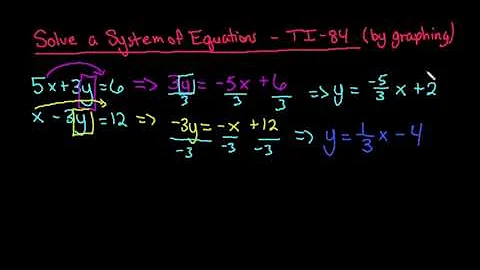 Solve a System of Equations - TI-84 (by graphing)
5x+3y=6 => 3y/3 = -5x/3 + 6/3 => y = -5/3 x + 2
x - 3y = 12 => -3y/-3 = -x/-3 + 12/-3 => y = 1/3 x - 4